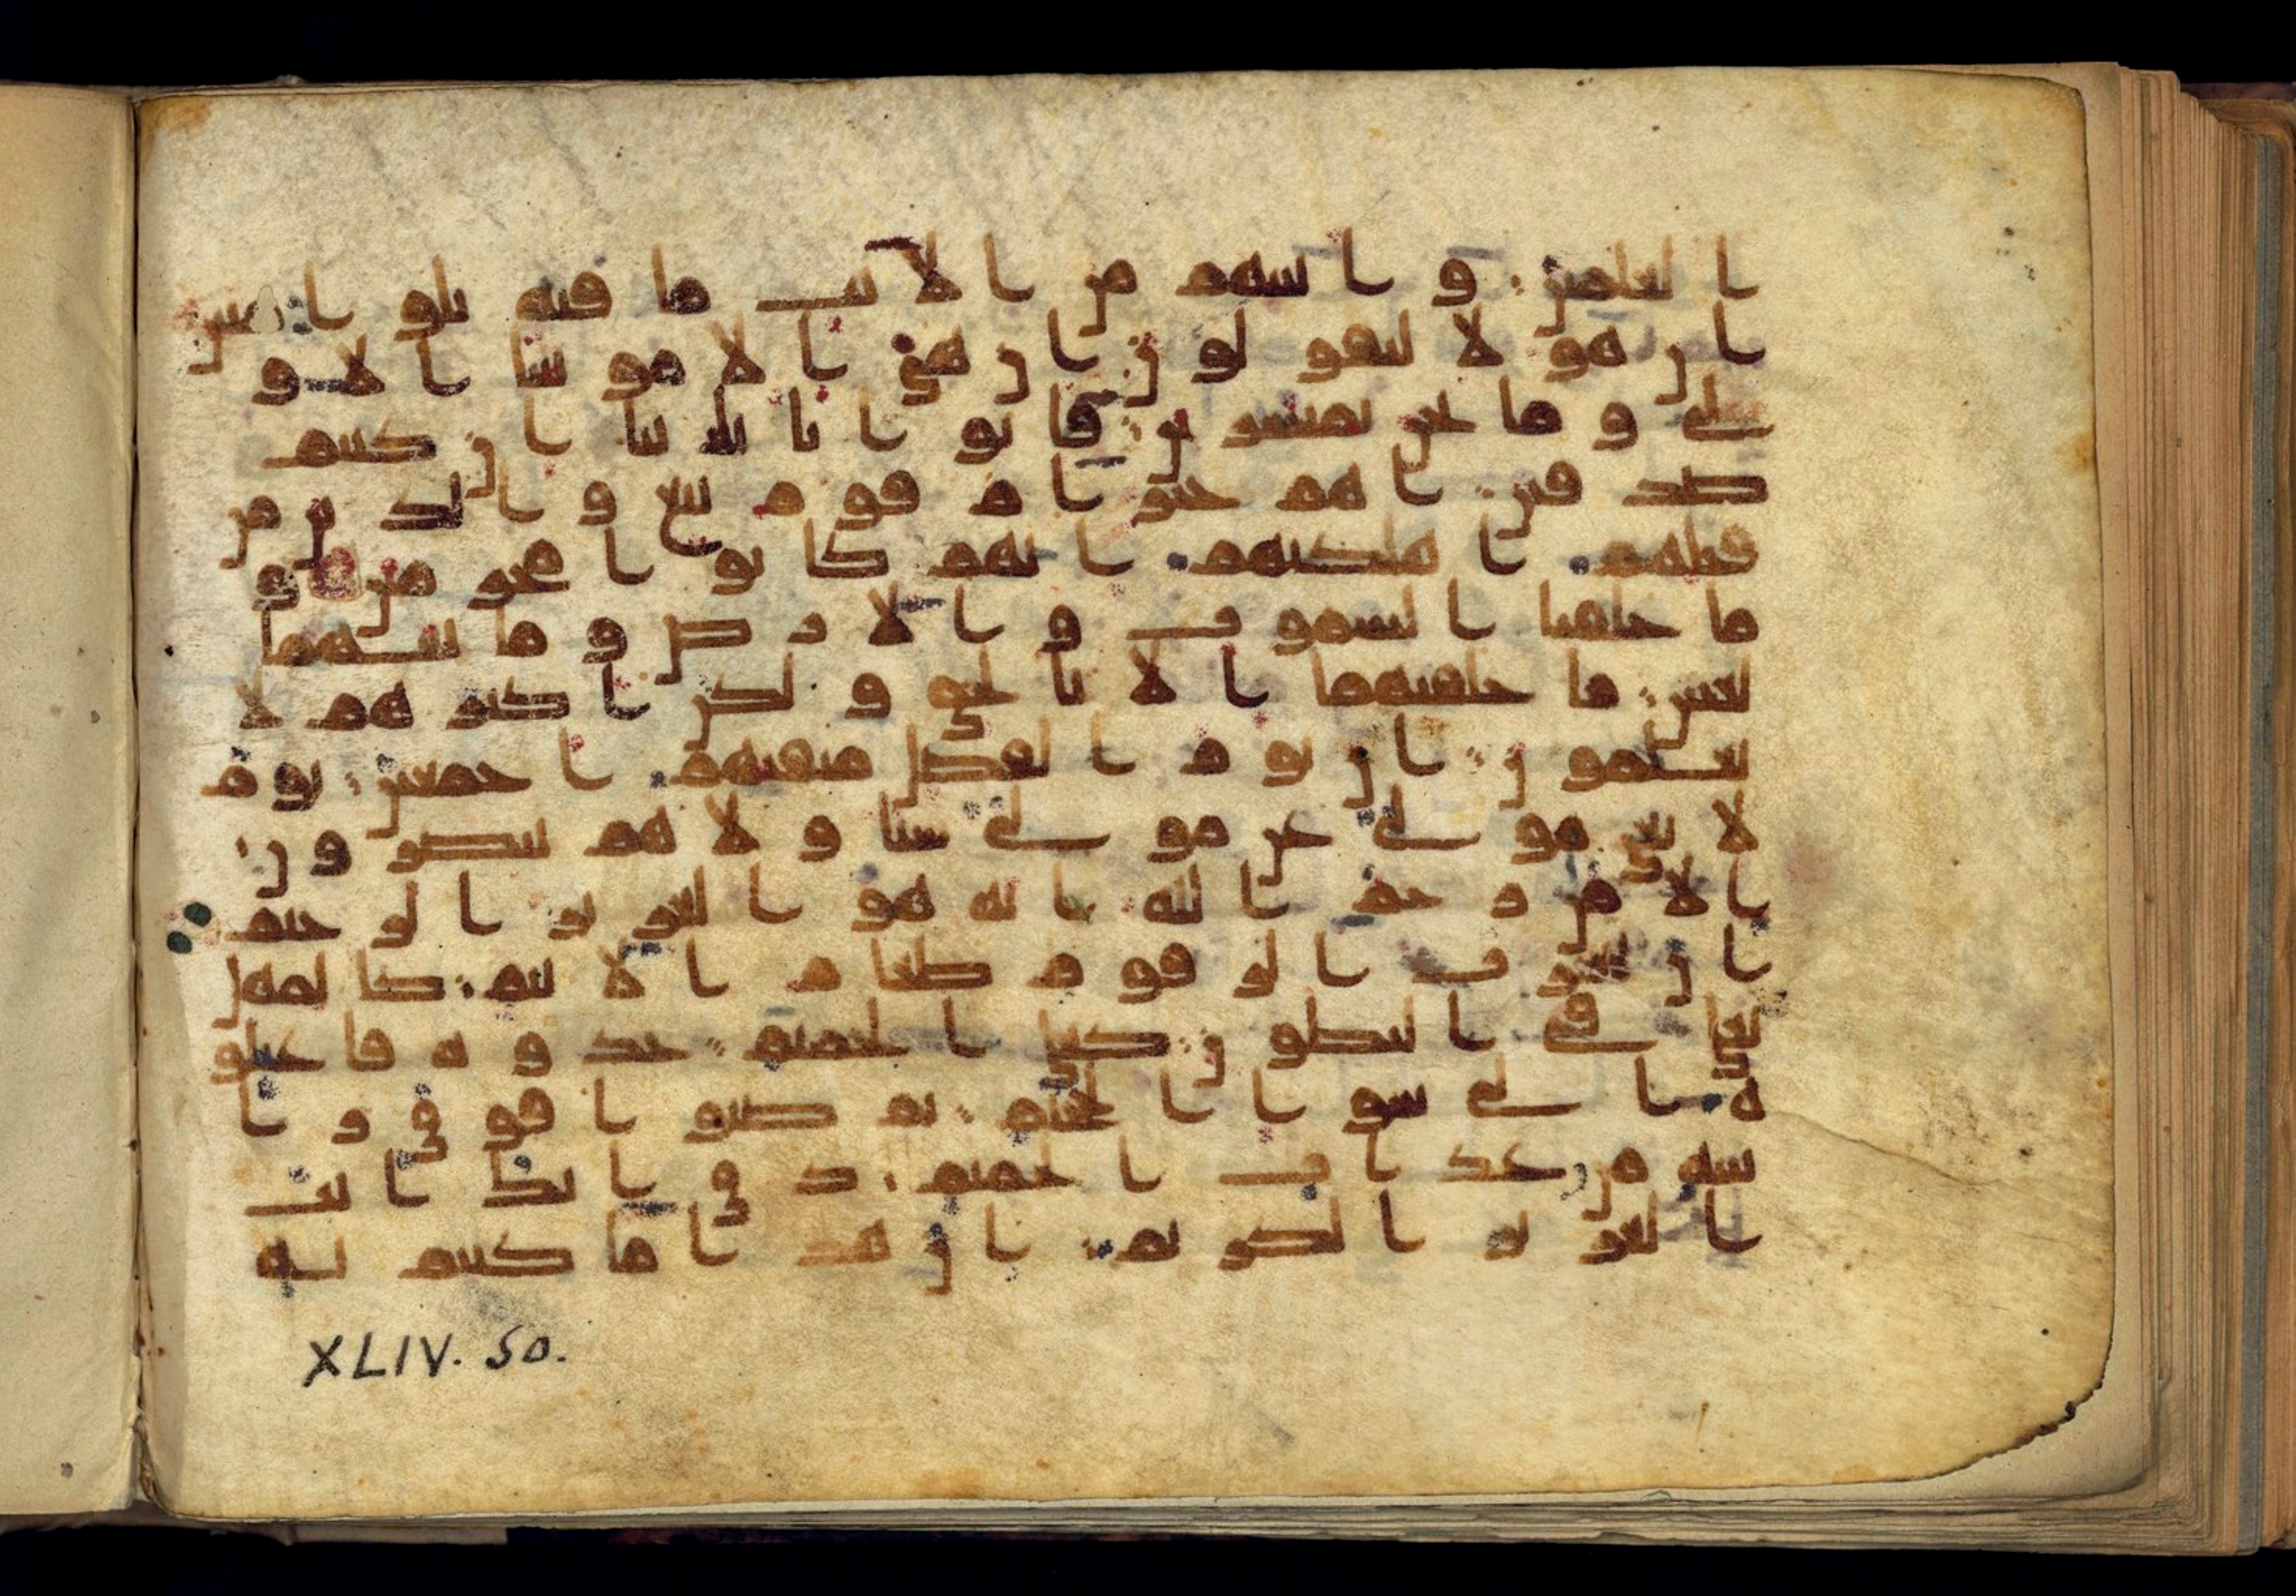 العلمين و اتينهم من الايت ما فيه بلوا مبين
ان هولا ليقولون ان هي الا موتتنا الاو
لى و ما نحن بمنشرين فاتوا باباينا ان كنتم
صدقين اهم خير ام قوم تبع و الذين من
قبلهم اهلكنهم انهم كانوا مجرمين و
ما خلقنا السموت و الارض و ما بينهما
لعبين ما خلقنهما الا بالحق و لكن اكثرهم لا
يعلمون ان يوم الفصل ميقتهم اجمعين يوم
لا يغني مولى عن مولى شيا و لا هم ينصرون
الا من رحم الله انه هو العزيز الرحيم
ان شجرت الزقوم طعام الاثيم كالمهل
يغلي في البطون كغلي الحميم خذوه فاعتلو
ه الى سوا الجحيم ثم صبوا فوق را
سه من عذاب الحميم ذق انك انت
العزيز الكريم ان هذا ما كنتم به
XLIV. 50.